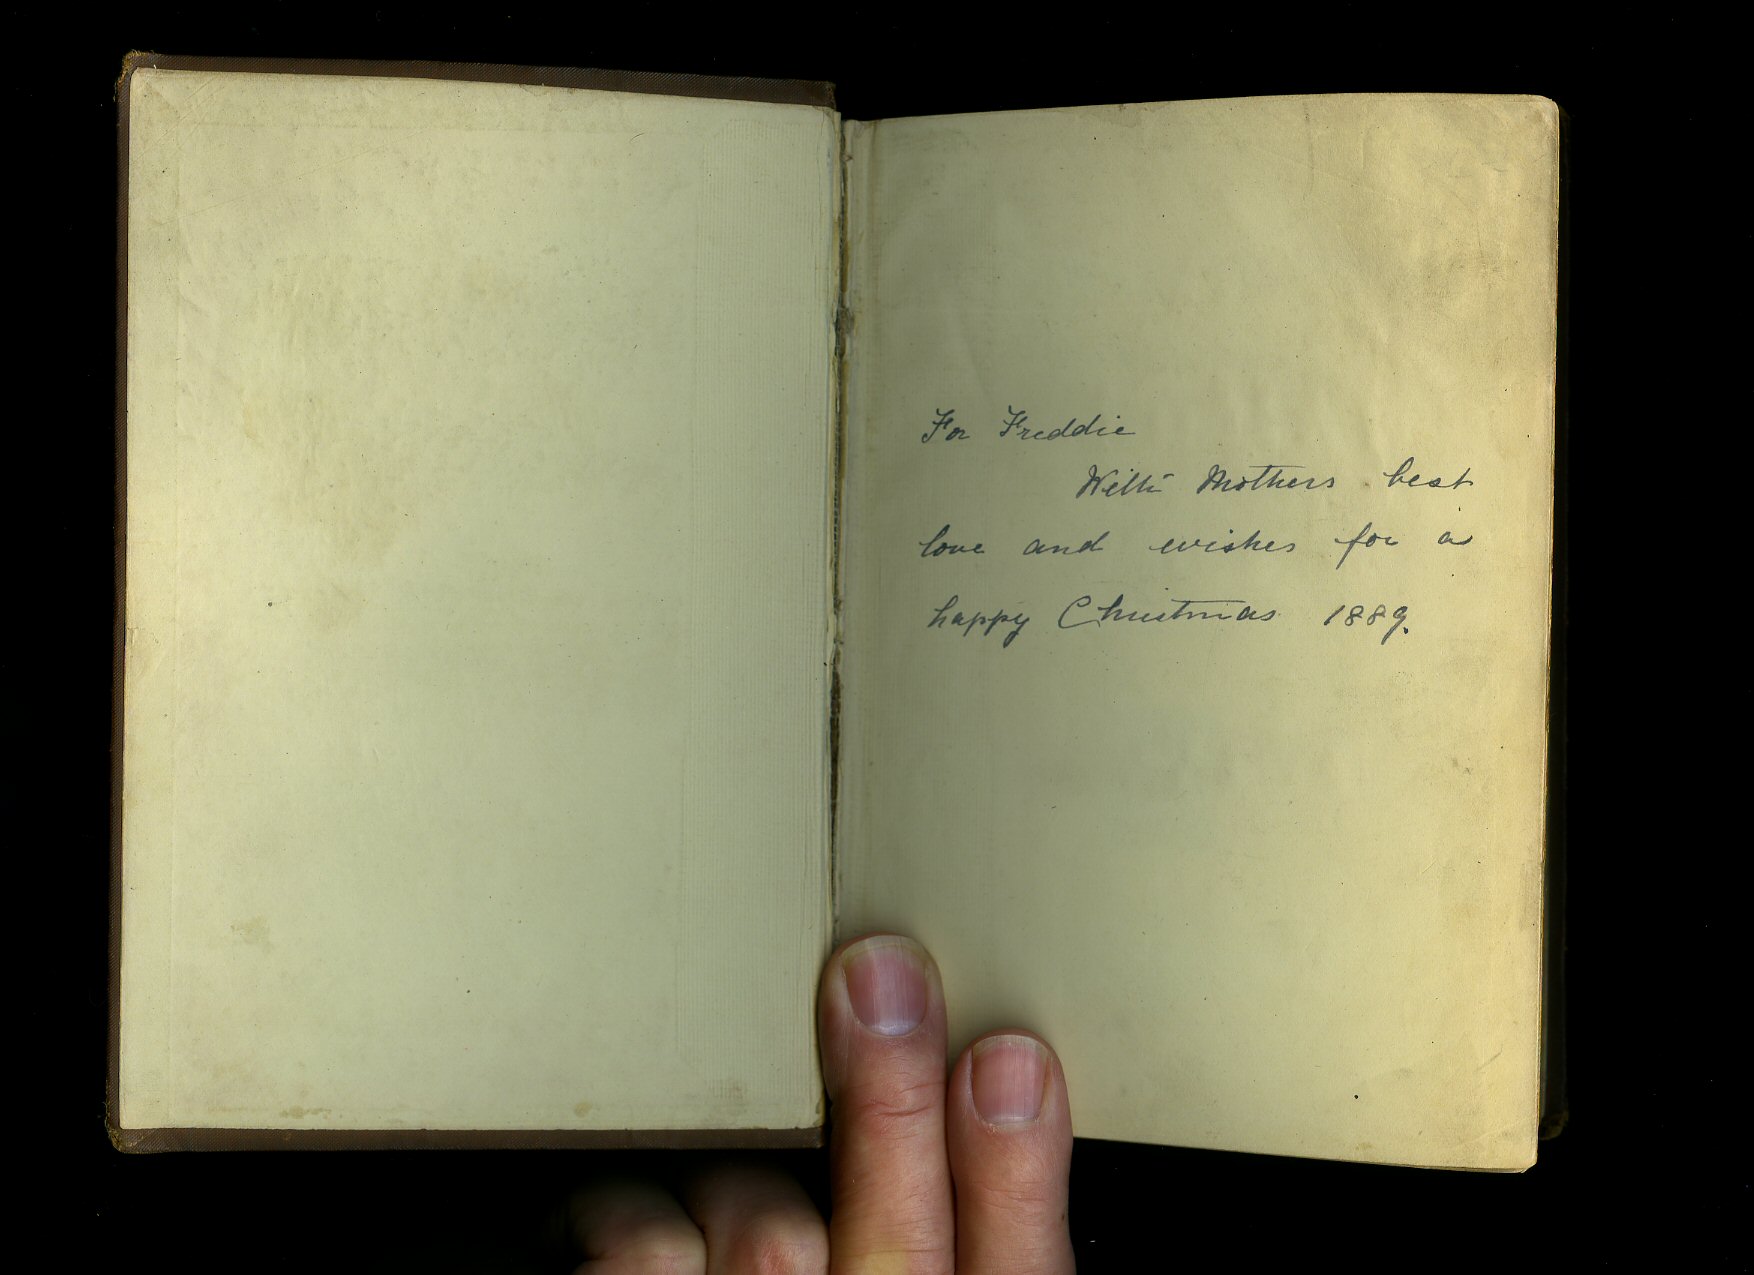 For Freddie
With Mothers best
love and wishes for a
happy Christmas 1889.